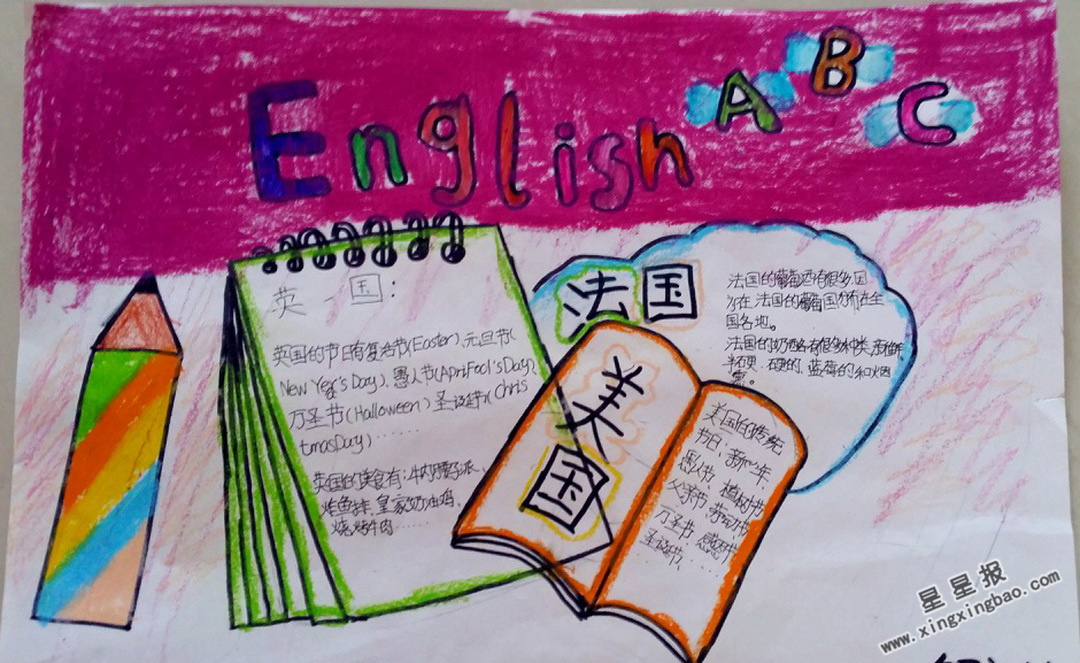 English
A B C
英国:
英国的节日有复活节(Easter)、元旦节(
New Year's Day)、愚人节(April Fool's Day)、
万圣节(Halloween)圣诞节(Chris
tmasDay)……
英国的美食有:牛肉腰子派、
炸鱼排、皇家奶油鸡、
烧烤牛肉……
法国
法国的葡萄酒有很多,因
为在法国的葡萄园分布在全
国各地。
法国的奶酪有很多种类,
半硬、硬的、蓝莓的和烟
熏。
美国
美国的传统
节日、新年、
愚人节、植树节
父亲节、劳动节
万圣节、感恩节
圣诞节、……
星星报
www.xingxingbao.com